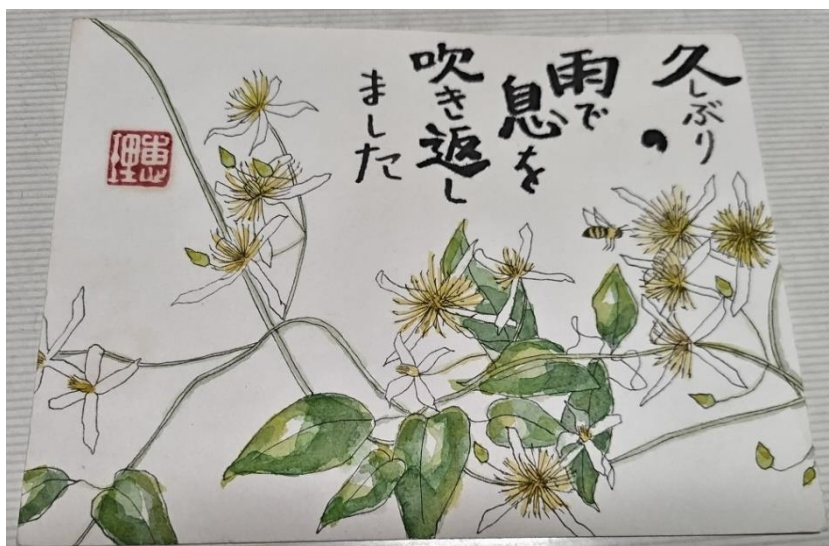 久しぶり
の
雨で
息を
吹き返し
ました
恵理